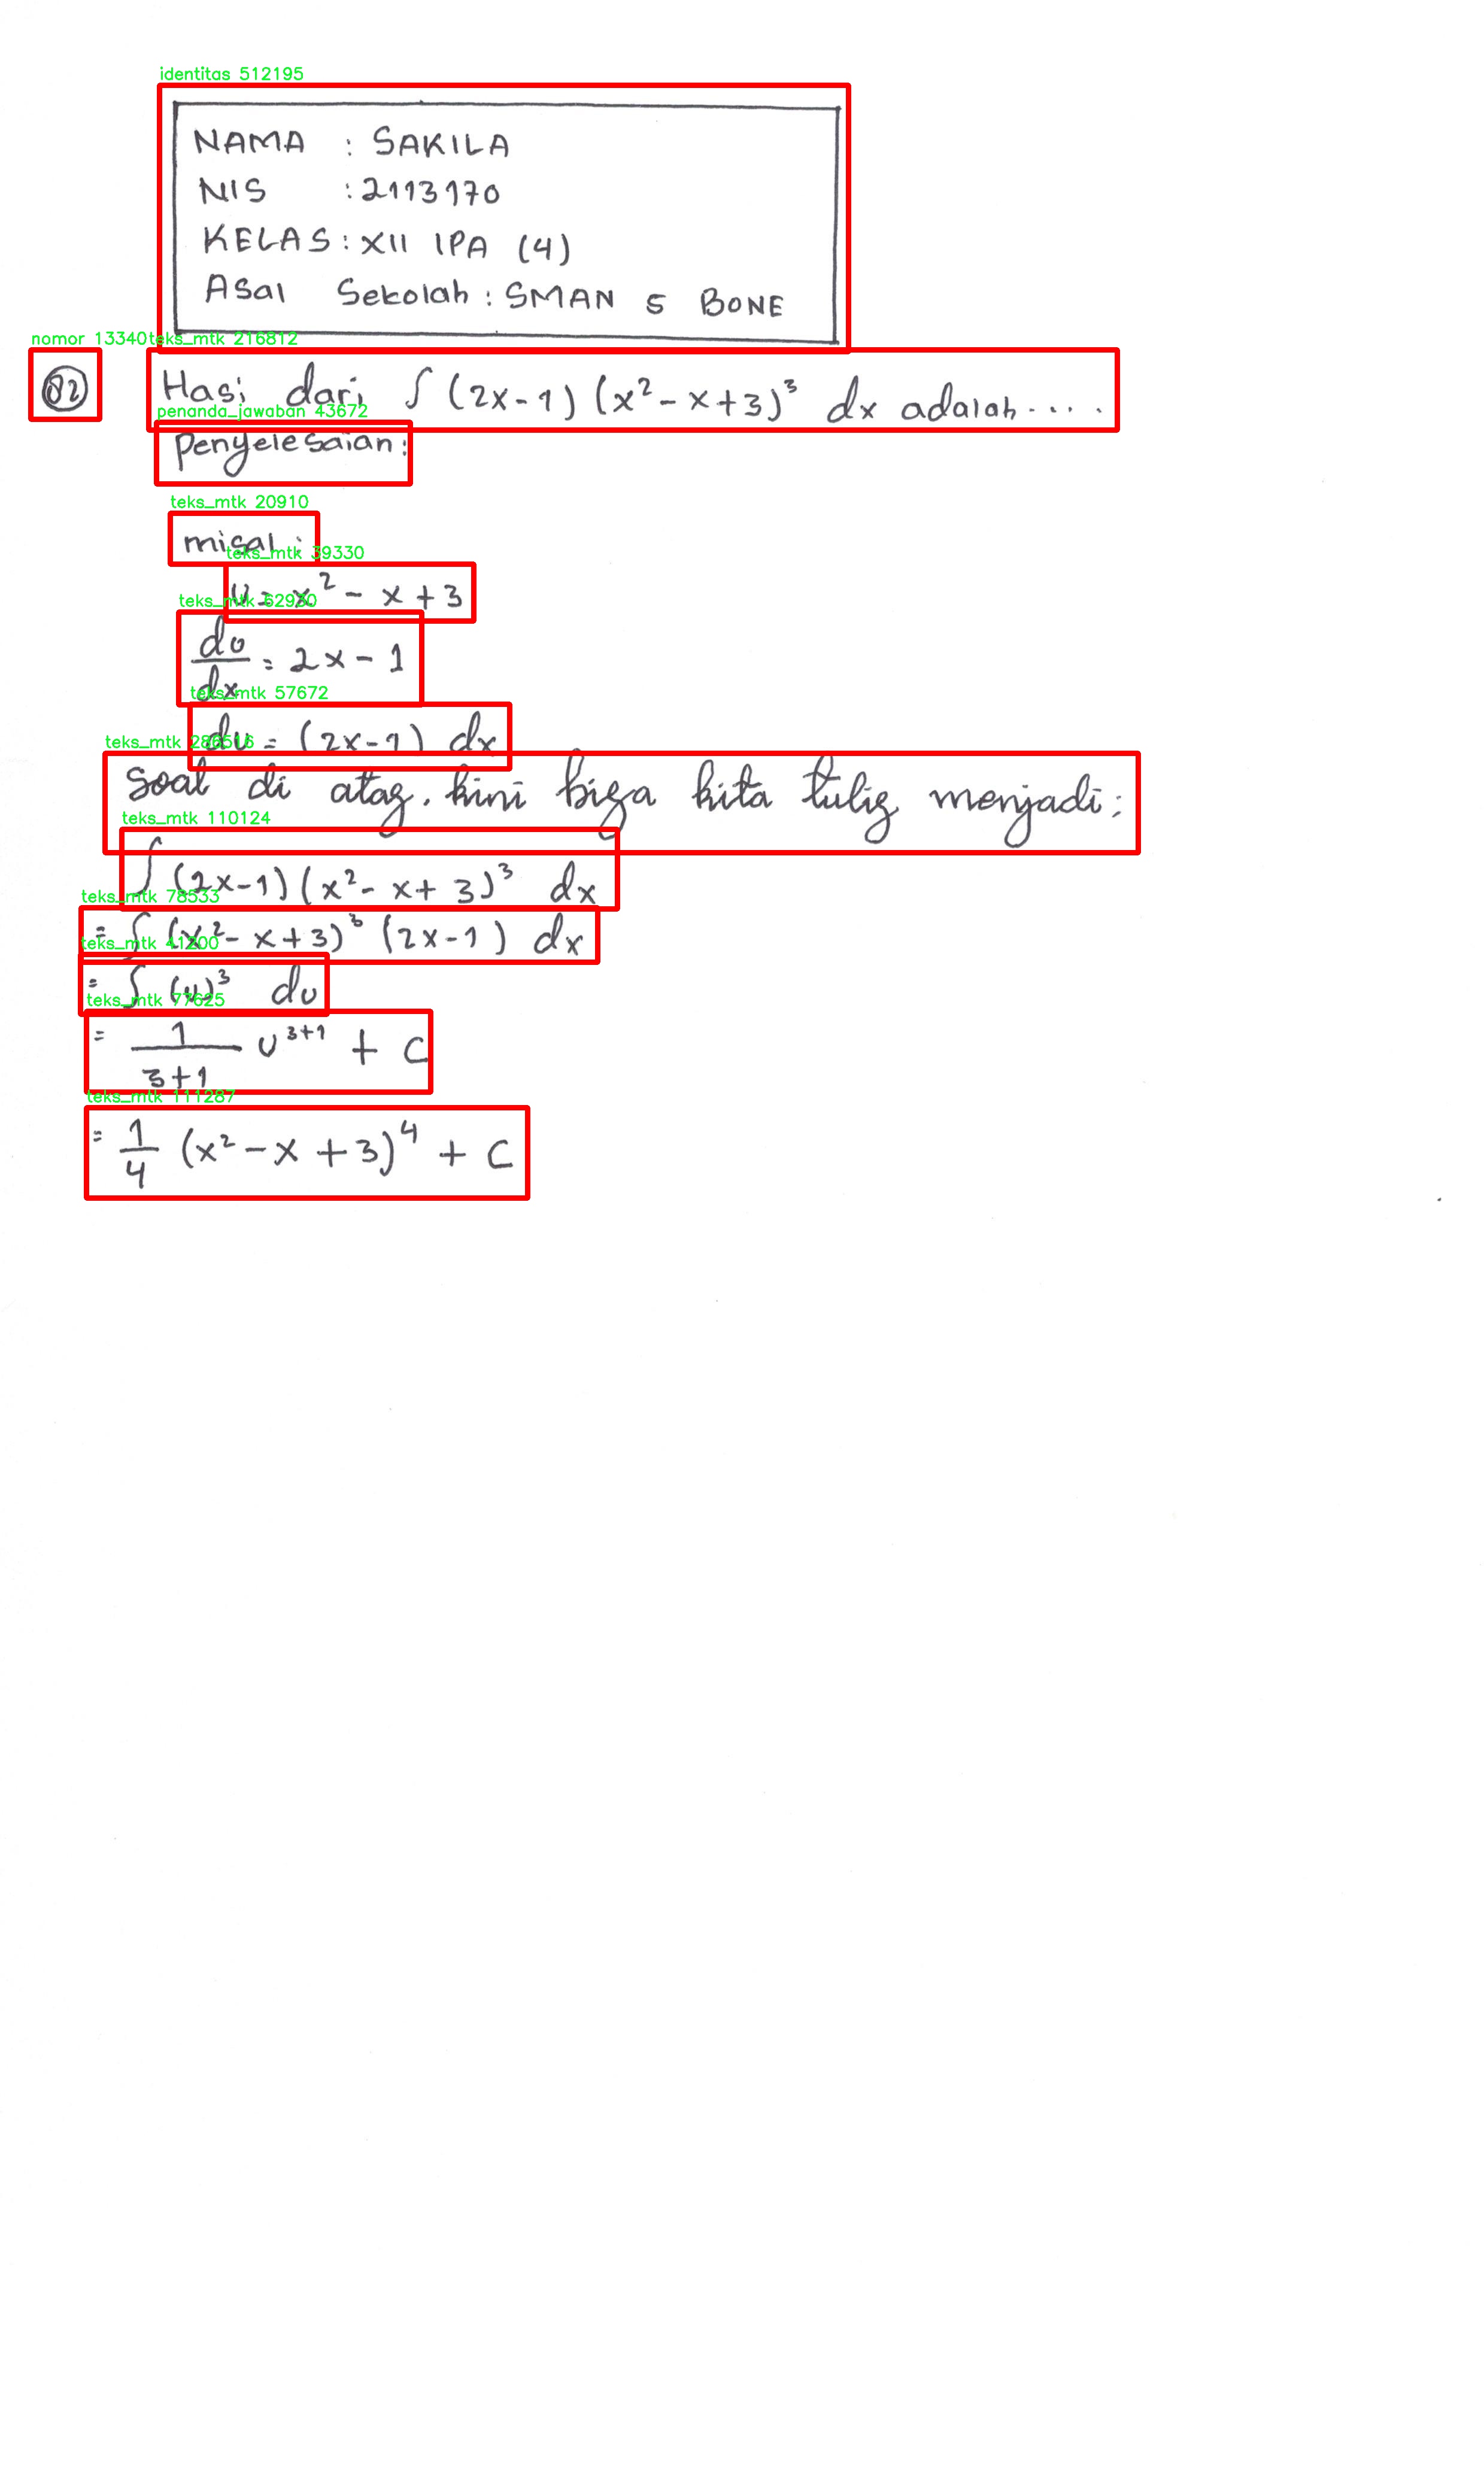 identitas 512195
NAMA : SAKILA
NIS : 2113170
KELAS : XII IPA (4)
Asal Sekolah : SMAN 5 BONE
nomor 13340 teks_mtk 216812
82 Hasi dari ∫ (2x-1) (x²-x+3)³ dx adalah ....
penanda_jawaban 43672
Penyelesaian:
teks_mtk 20910
misal :
teks_mtk 39330
u = x² - x + 3
teks_mtk 62930
du/dx = 2x - 1
teks_mtk 57672
du = (2x-1) dx
teks_mtk 286516
Soal di atas, kini bisa kita tulis menjadi:
teks_mtk 110124
∫ (2x-1) (x²- x + 3)³ dx
teks_mtk 78533
= ∫ (x²- x + 3)³ (2x-1) dx
teks_mtk 41200
= ∫ (u)³ du
teks_mtk 77625
= 1/(3+1) u³⁺¹ + C
teks_mtk 111287
= 1/4 (x² - x + 3)⁴ + C